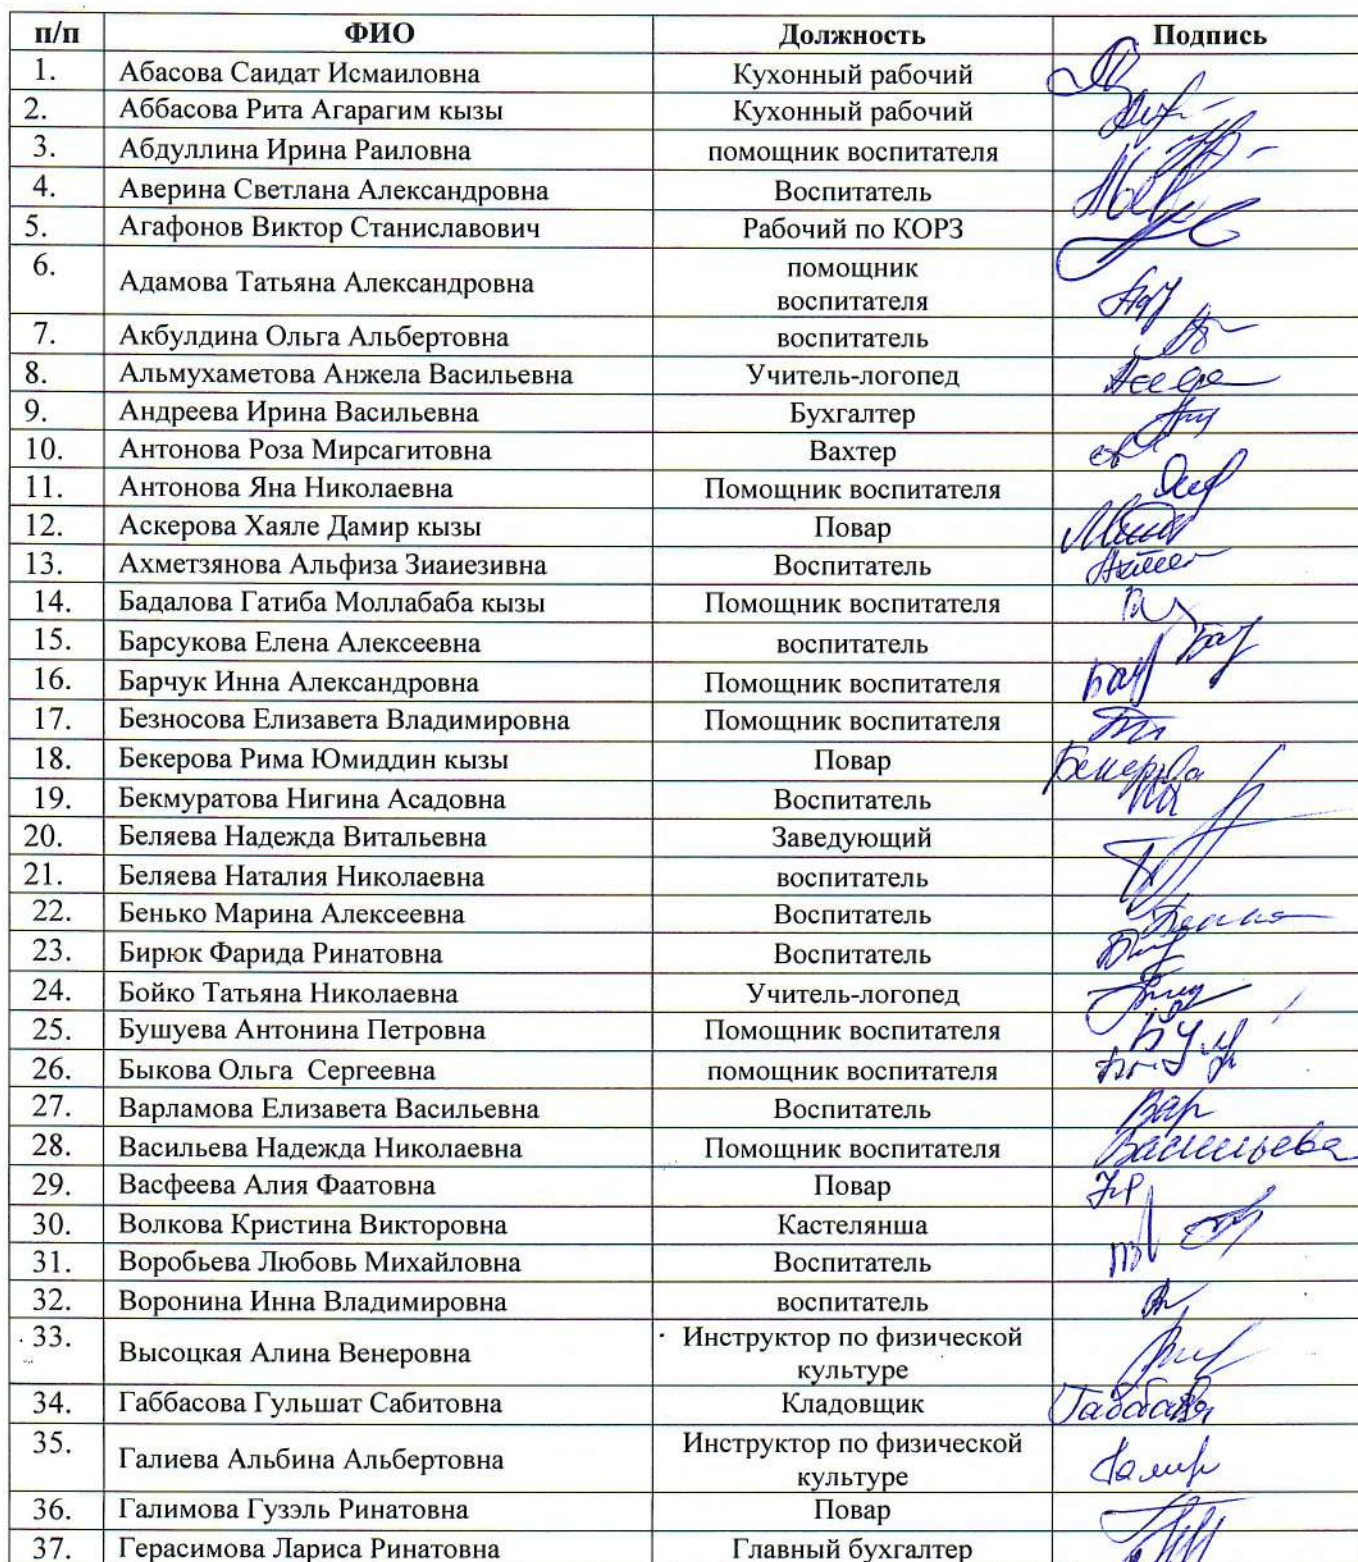 п/п ФИО Должность Подпись
1. Абасова Саидат Исмаиловна Кухонный рабочий
2. Аббасова Рита Агарагим кызы Кухонный рабочий
3. Абдуллина Ирина Раиловна помощник воспитателя
4. Аверина Светлана Александровна Воспитатель
5. Агафонов Виктор Станиславович Рабочий по КОРЗ
6. Адамова Татьяна Александровна помощник
воспитателя
7. Акбулдина Ольга Альбертовна воспитатель
8. Альмухаметова Анжела Васильевна Учитель-логопед
9. Андреева Ирина Васильевна Бухгалтер
10. Антонова Роза Мирсагитовна Вахтер
11. Антонова Яна Николаевна Помощник воспитателя
12. Аскерова Хаяле Дамир кызы Повар
13. Ахметзянова Альфиза Зиаиезивна Воспитатель
14. Бадалова Гатиба Моллабаба кызы Помощник воспитателя
15. Барсукова Елена Алексеевна воспитатель
16. Барчук Инна Александровна Помощник воспитателя
17. Безносова Елизавета Владимировна Помощник воспитателя
18. Бекерова Рима Юмиддин кызы Повар Бекерова
19. Бекмуратова Нигина Асадовна Воспитатель
20. Беляева Надежда Витальевна Заведующий
21. Беляева Наталия Николаевна воспитатель
22. Бенько Марина Алексеевна Воспитатель
23. Бирюк Фарида Ринатовна Воспитатель
24. Бойко Татьяна Николаевна Учитель-логопед
25. Бушуева Антонина Петровна Помощник воспитателя
26. Быкова Ольга Сергеевна помощник воспитателя
27. Варламова Елизавета Васильевна Воспитатель Вар
28. Васильева Надежда Николаевна Помощник воспитателя Васильева
29. Васфеева Алия Фаатовна Повар
30. Волкова Кристина Викторовна Кастелянша
31. Воробьева Любовь Михайловна Воспитатель
32. Воронина Инна Владимировна воспитатель
33. Высоцкая Алина Венеровна Инструктор по физической
культуре
34. Габбасова Гульшат Сабитовна Кладовщик
35. Галиева Альбина Альбертовна Инструктор по физической
культуре
36. Галимова Гузэль Ринатовна Повар
37. Герасимова Лариса Ринатовна Главный бухгалтер